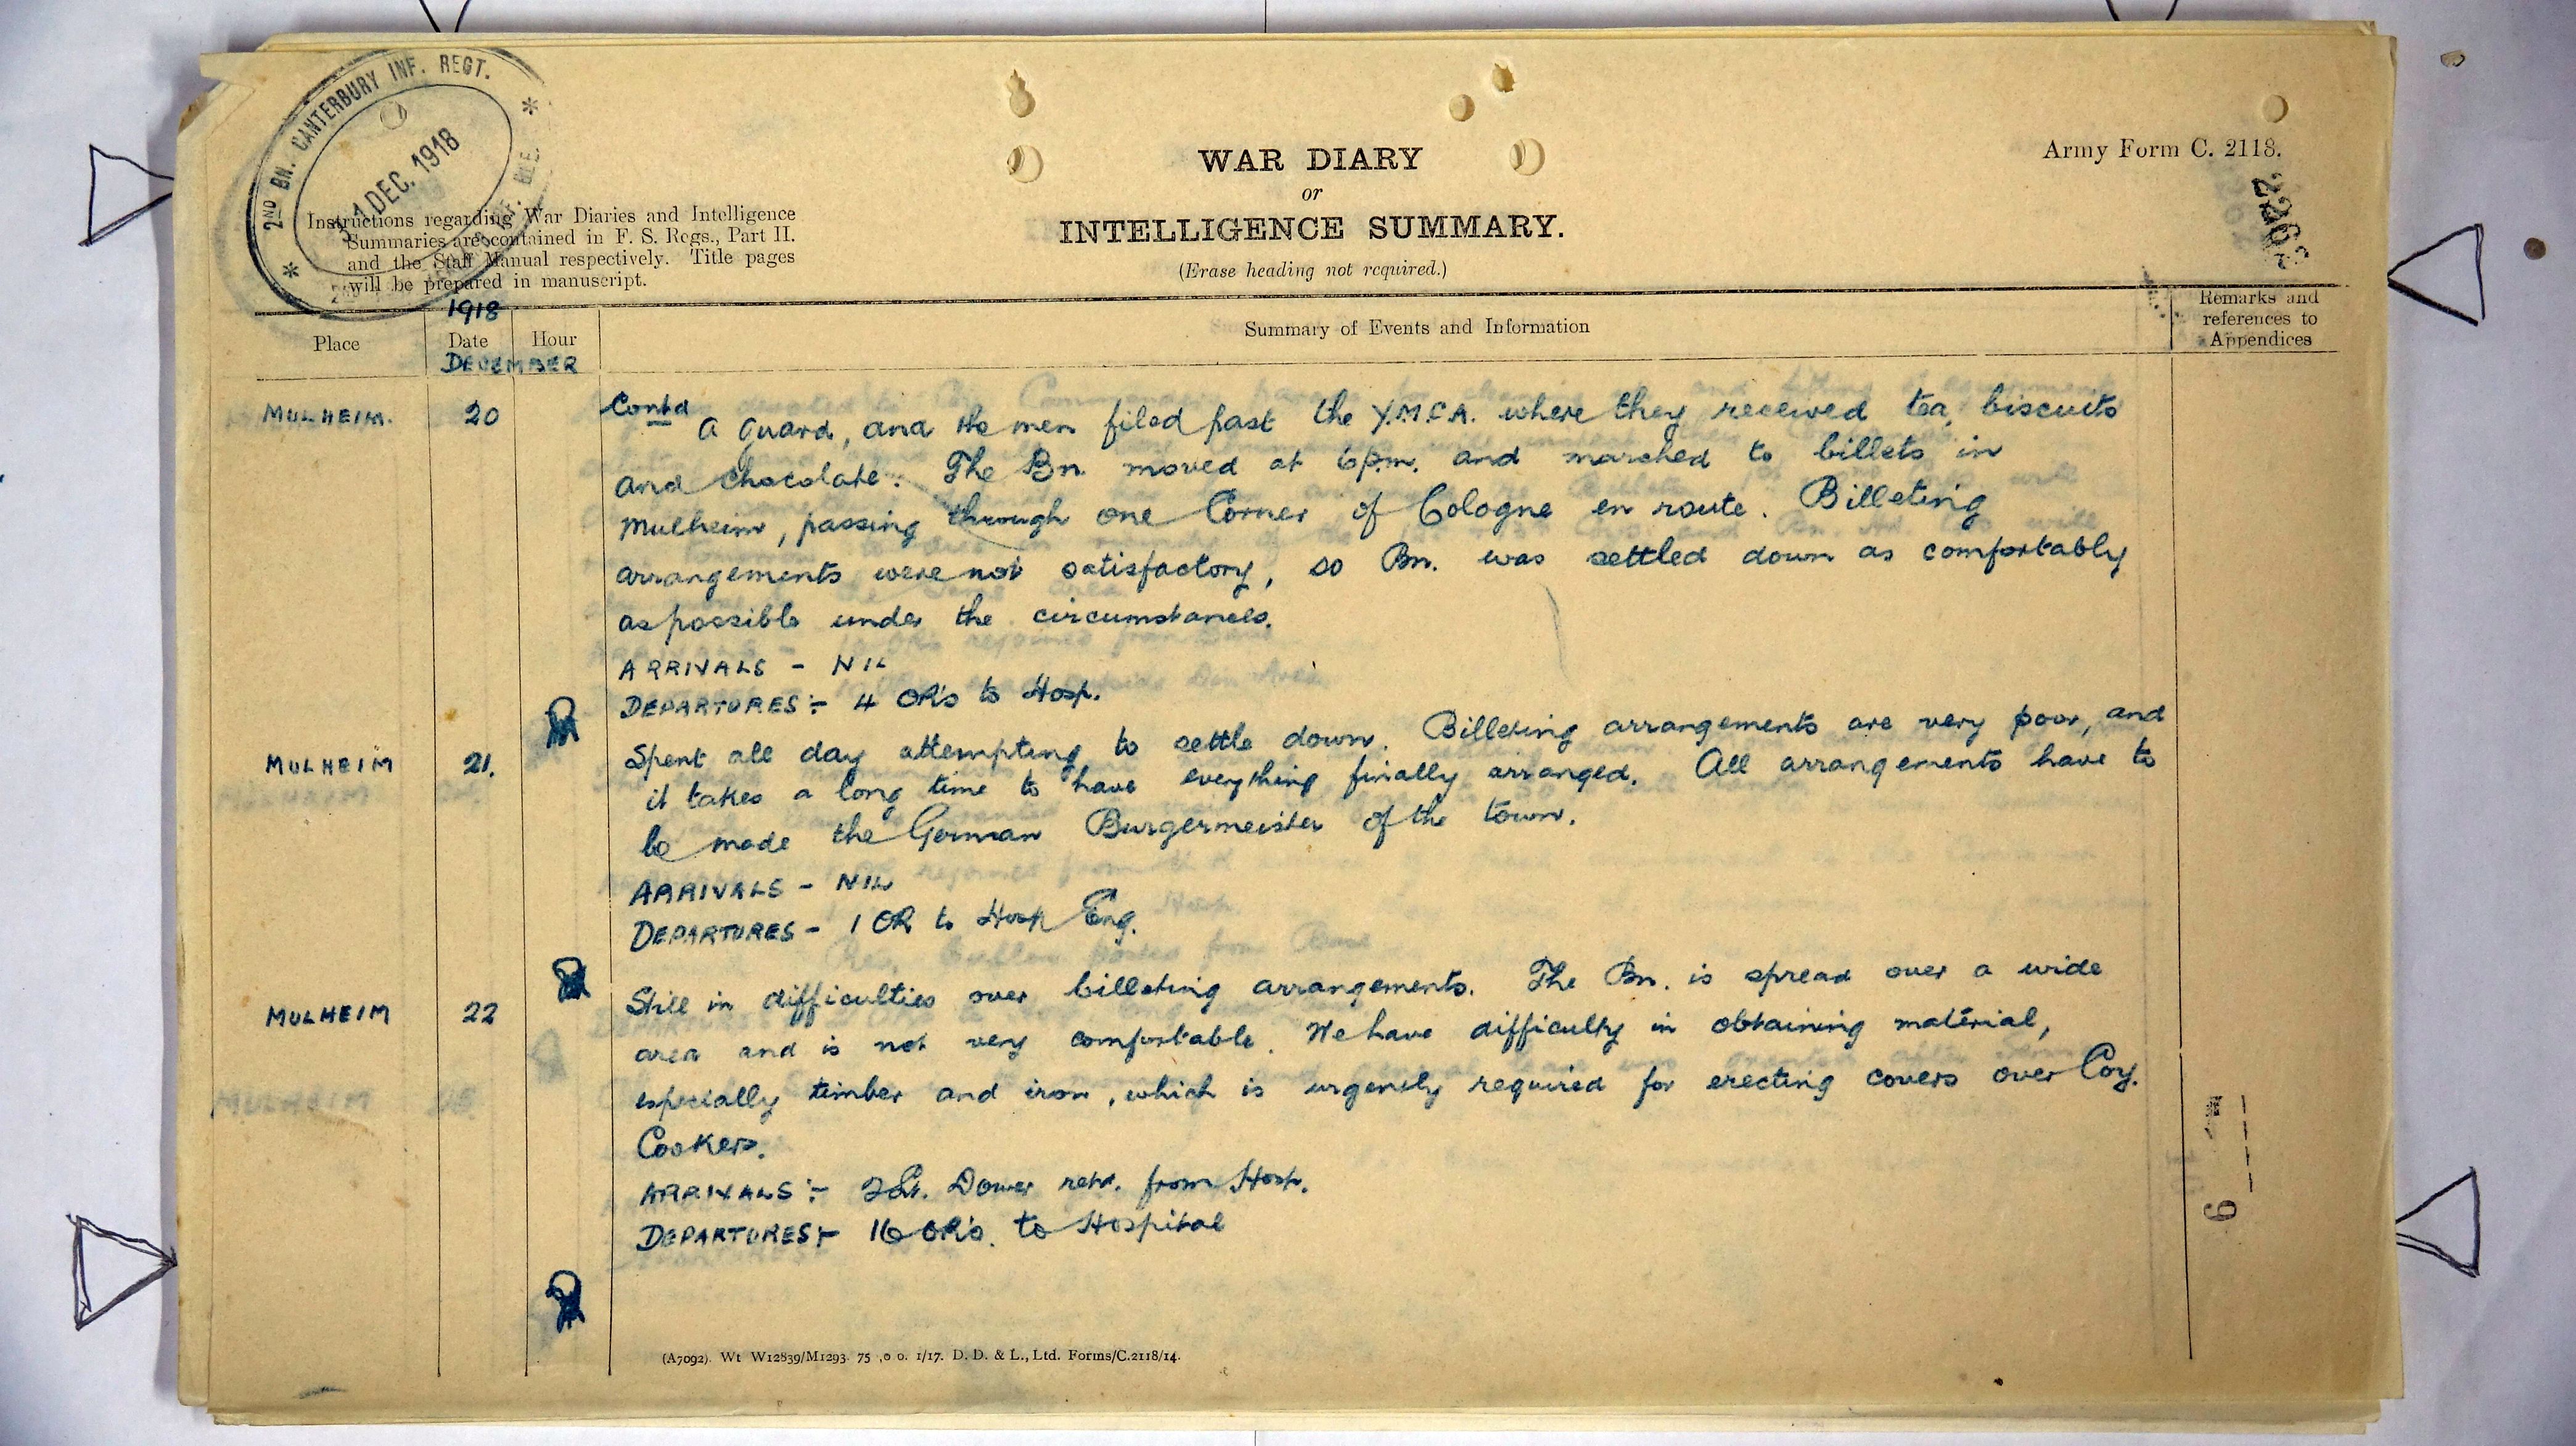 2ND BN. CANTERBURY INF. REGT.
31 DEC. 1918
Army Form C. 2118.
WAR DIARY
or
INTELLIGENCE SUMMARY.
(Erase heading not required.)
Instructions regarding War Diaries and Intelligence
Summaries are contained in F. S. Regs., Part II.
and the Staff Manual respectively. Title pages
will be prepared in manuscript.
1918
Place Date Hour Summary of Events and Information Remarks and references to Appendices
DECEMBER
MULHEIM. 20 Contd A guard, and the men filed past the Y.M.C.A. where they received tea, biscuits
and chocolate. The Bn. moved at 6 p.m. and marched to billets in
Mulheim, passing through one Corner of Cologne en route. Billeting
arrangements were not satisfactory, so Bn. was settled down as comfortably
as possible under the circumstances.
ARRIVALS - NIL
DEPARTURES :- 4 OR's to Hosp.
MULHEIM 21. Spent all day attempting to settle down. Billeting arrangements are very poor, and
it takes a long time to have everything finally arranged. All arrangements have to
be made the German Burgermeister of the town.
ARRIVALS - NIL
DEPARTURES - 1 OR to Hosp Eng.
MULHEIM 22 Still in difficulties over billeting arrangements. The Bn. is spread over a wide
area and is not very comfortable. We have difficulty in obtaining material,
especially timber and iron, which is urgently required for erecting covers over Coy.
Cookers.
ARRIVALS :- 2Lt. Dower retd. from Hosp.
DEPARTURES :- 16 OR's. to Hospital
(A7092). Wt W12839/M1293. 75 ,0 0. 1/17. D. D. & L., Ltd. Forms/C.2118/14.